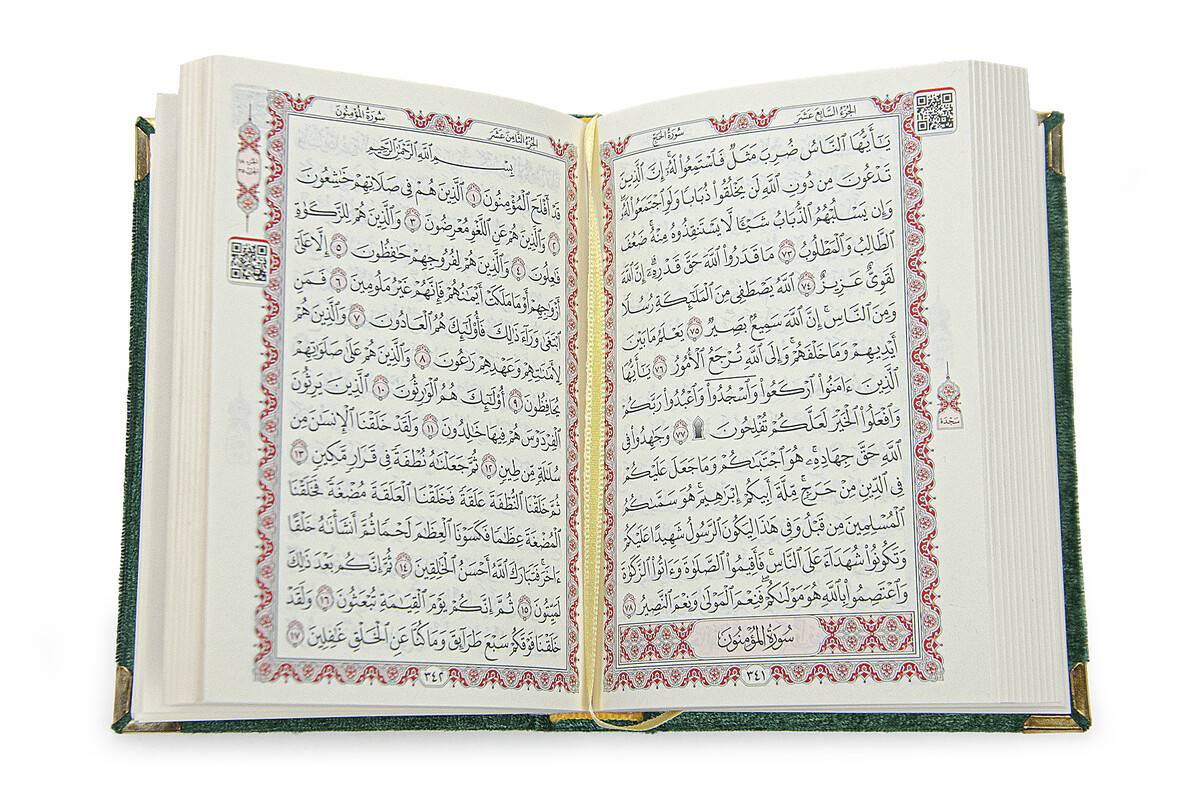 سُورَةُ الحَجِّ الجُزْءُ السَّابِعَ عَشَرَ
يَـٰٓأَيُّهَا ٱلنَّاسُ ضُرِبَ مَثَلٌ فَٱسْتَمِعُوا۟ لَهُۥٓ ۚ إِنَّ ٱلَّذِينَ
تَدْعُونَ مِن دُونِ ٱللَّهِ لَن يَخْلُقُوا۟ ذُبَابًا وَلَوِ ٱجْتَمَعُوا۟ لَهُۥ ۖ
وَإِن يَسْلُبْهُمُ ٱلذُّبَابُ شَيْـًٔا لَّا يَسْتَنقِذُوهُ مِنْهُ ۚ ضَعُفَ
ٱلطَّالِبُ وَٱلْمَطْلُوبُ ٧٣ مَا قَدَرُوا۟ ٱللَّهَ حَقَّ قَدْرِهِۦٓ ۗ إِنَّ ٱللَّهَ
لَقَوِىٌّ عَزِيزٌ ٧٤ ٱللَّهُ يَصْطَفِى مِنَ ٱلْمَلَـٰٓئِكَةِ رُسُلًا
وَمِنَ ٱلنَّاسِ ۚ إِنَّ ٱللَّهَ سَمِيعٌۢ بَصِيرٌ ٧٥ يَعْلَمُ مَا بَيْنَ
أَيْدِيهِمْ وَمَا خَلْفَهُمْ ۗ وَإِلَى ٱللَّهِ تُرْجَعُ ٱلْأُمُورُ ٧٦ يَـٰٓأَيُّهَا
ٱلَّذِينَ ءَامَنُوا۟ ٱرْكَعُوا۟ وَٱسْجُدُوا۟ وَٱعْبُدُوا۟ رَبَّكُمْ
وَٱفْعَلُوا۟ ٱلْخَيْرَ لَعَلَّكُمْ تُفْلِحُونَ ۩ ٧٧ وَجَـٰهِدُوا۟ فِى
ٱللَّهِ حَقَّ جِهَادِهِۦ ۚ هُوَ ٱجْتَبَىٰكُمْ وَمَا جَعَلَ عَلَيْكُمْ
فِى ٱلدِّينِ مِنْ حَرَجٍ ۚ مِّلَّةَ أَبِيكُمْ إِبْرَٰهِيمَ ۚ هُوَ سَمَّىٰكُمُ
ٱلْمُسْلِمِينَ مِن قَبْلُ وَفِى هَـٰذَا لِيَكُونَ ٱلرَّسُولُ شَهِيدًا عَلَيْكُمْ
وَتَكُونُوا۟ شُهَدَآءَ عَلَى ٱلنَّاسِ ۚ فَأَقِيمُوا۟ ٱلصَّلَوٰةَ وَءَاتُوا۟ ٱلزَّكَوٰةَ
وَٱعْتَصِمُوا۟ بِٱللَّهِ هُوَ مَوْلَىٰكُمْ ۖ فَنِعْمَ ٱلْمَوْلَىٰ وَنِعْمَ ٱلنَّصِيرُ ٧٨
سُورَةُ المُؤْمِنُونَ
٣٤١
سَجْدَة
سُورَةُ المُؤْمِنُونَ الجُزْءُ الثَّامِنَ عَشَرَ
بِسْمِ ٱللَّهِ ٱلرَّحْمَـٰنِ ٱلرَّحِيمِ
قَدْ أَفْلَحَ ٱلْمُؤْمِنُونَ ١ ٱلَّذِينَ هُمْ فِى صَلَاتِهِمْ خَـٰشِعُونَ
٢ وَٱلَّذِينَ هُمْ عَنِ ٱللَّغْوِ مُعْرِضُونَ ٣ وَٱلَّذِينَ هُمْ لِلزَّكَوٰةِ
فَـٰعِلُونَ ٤ وَٱلَّذِينَ هُمْ لِفُرُوجِهِمْ حَـٰفِظُونَ ٥ إِلَّا عَلَىٰٓ
أَزْوَٰجِهِمْ أَوْ مَا مَلَكَتْ أَيْمَـٰنُهُمْ فَإِنَّهُمْ غَيْرُ مَلُومِينَ ٦ فَمَنِ
ٱبْتَغَىٰ وَرَآءَ ذَٰلِكَ فَأُو۟لَـٰٓئِكَ هُمُ ٱلْعَادُونَ ٧ وَٱلَّذِينَ هُمْ
لِأَمَـٰنَـٰتِهِمْ وَعَهْدِهِمْ رَٰعُونَ ٨ وَٱلَّذِينَ هُمْ عَلَىٰ صَلَوَٰتِهِمْ
يُحَافِظُونَ ٩ أُو۟لَـٰٓئِكَ هُمُ ٱلْوَٰرِثُونَ ١٠ ٱلَّذِينَ يَرِثُونَ
ٱلْفِرْدَوْسَ هُمْ فِيهَا خَـٰلِدُونَ ١١ وَلَقَدْ خَلَقْنَا ٱلْإِنسَـٰنَ مِن
سُلَـٰلَةٍ مِّن طِينٍ ١٢ ثُمَّ جَعَلْنَـٰهُ نُطْفَةً فِى قَرَارٍ مَّكِينٍ ١٣
ثُمَّ خَلَقْنَا ٱلنُّطْفَةَ عَلَقَةً فَخَلَقْنَا ٱلْعَلَقَةَ مُضْغَةً فَخَلَقْنَا
ٱلْمُضْغَةَ عِظَـٰمًا فَكَسَوْنَا ٱلْعِظَـٰمَ لَحْمًا ثُمَّ أَنشَأْنَـٰهُ خَلْقًا
ءَاخَرَ ۚ فَتَبَارَكَ ٱللَّهُ أَحْسَنُ ٱلْخَـٰلِقِينَ ١٤ ثُمَّ إِنَّكُم بَعْدَ ذَٰلِكَ
لَمَيِّتُونَ ١٥ ثُمَّ إِنَّكُمْ يَوْمَ ٱلْقِيَـٰمَةِ تُبْعَثُونَ ١٦ وَلَقَدْ
خَلَقْنَا فَوْقَكُمْ سَبْعَ طَرَآئِقَ وَمَا كُنَّا عَنِ ٱلْخَلْقِ غَـٰفِلِينَ ١٧
٣٤٢